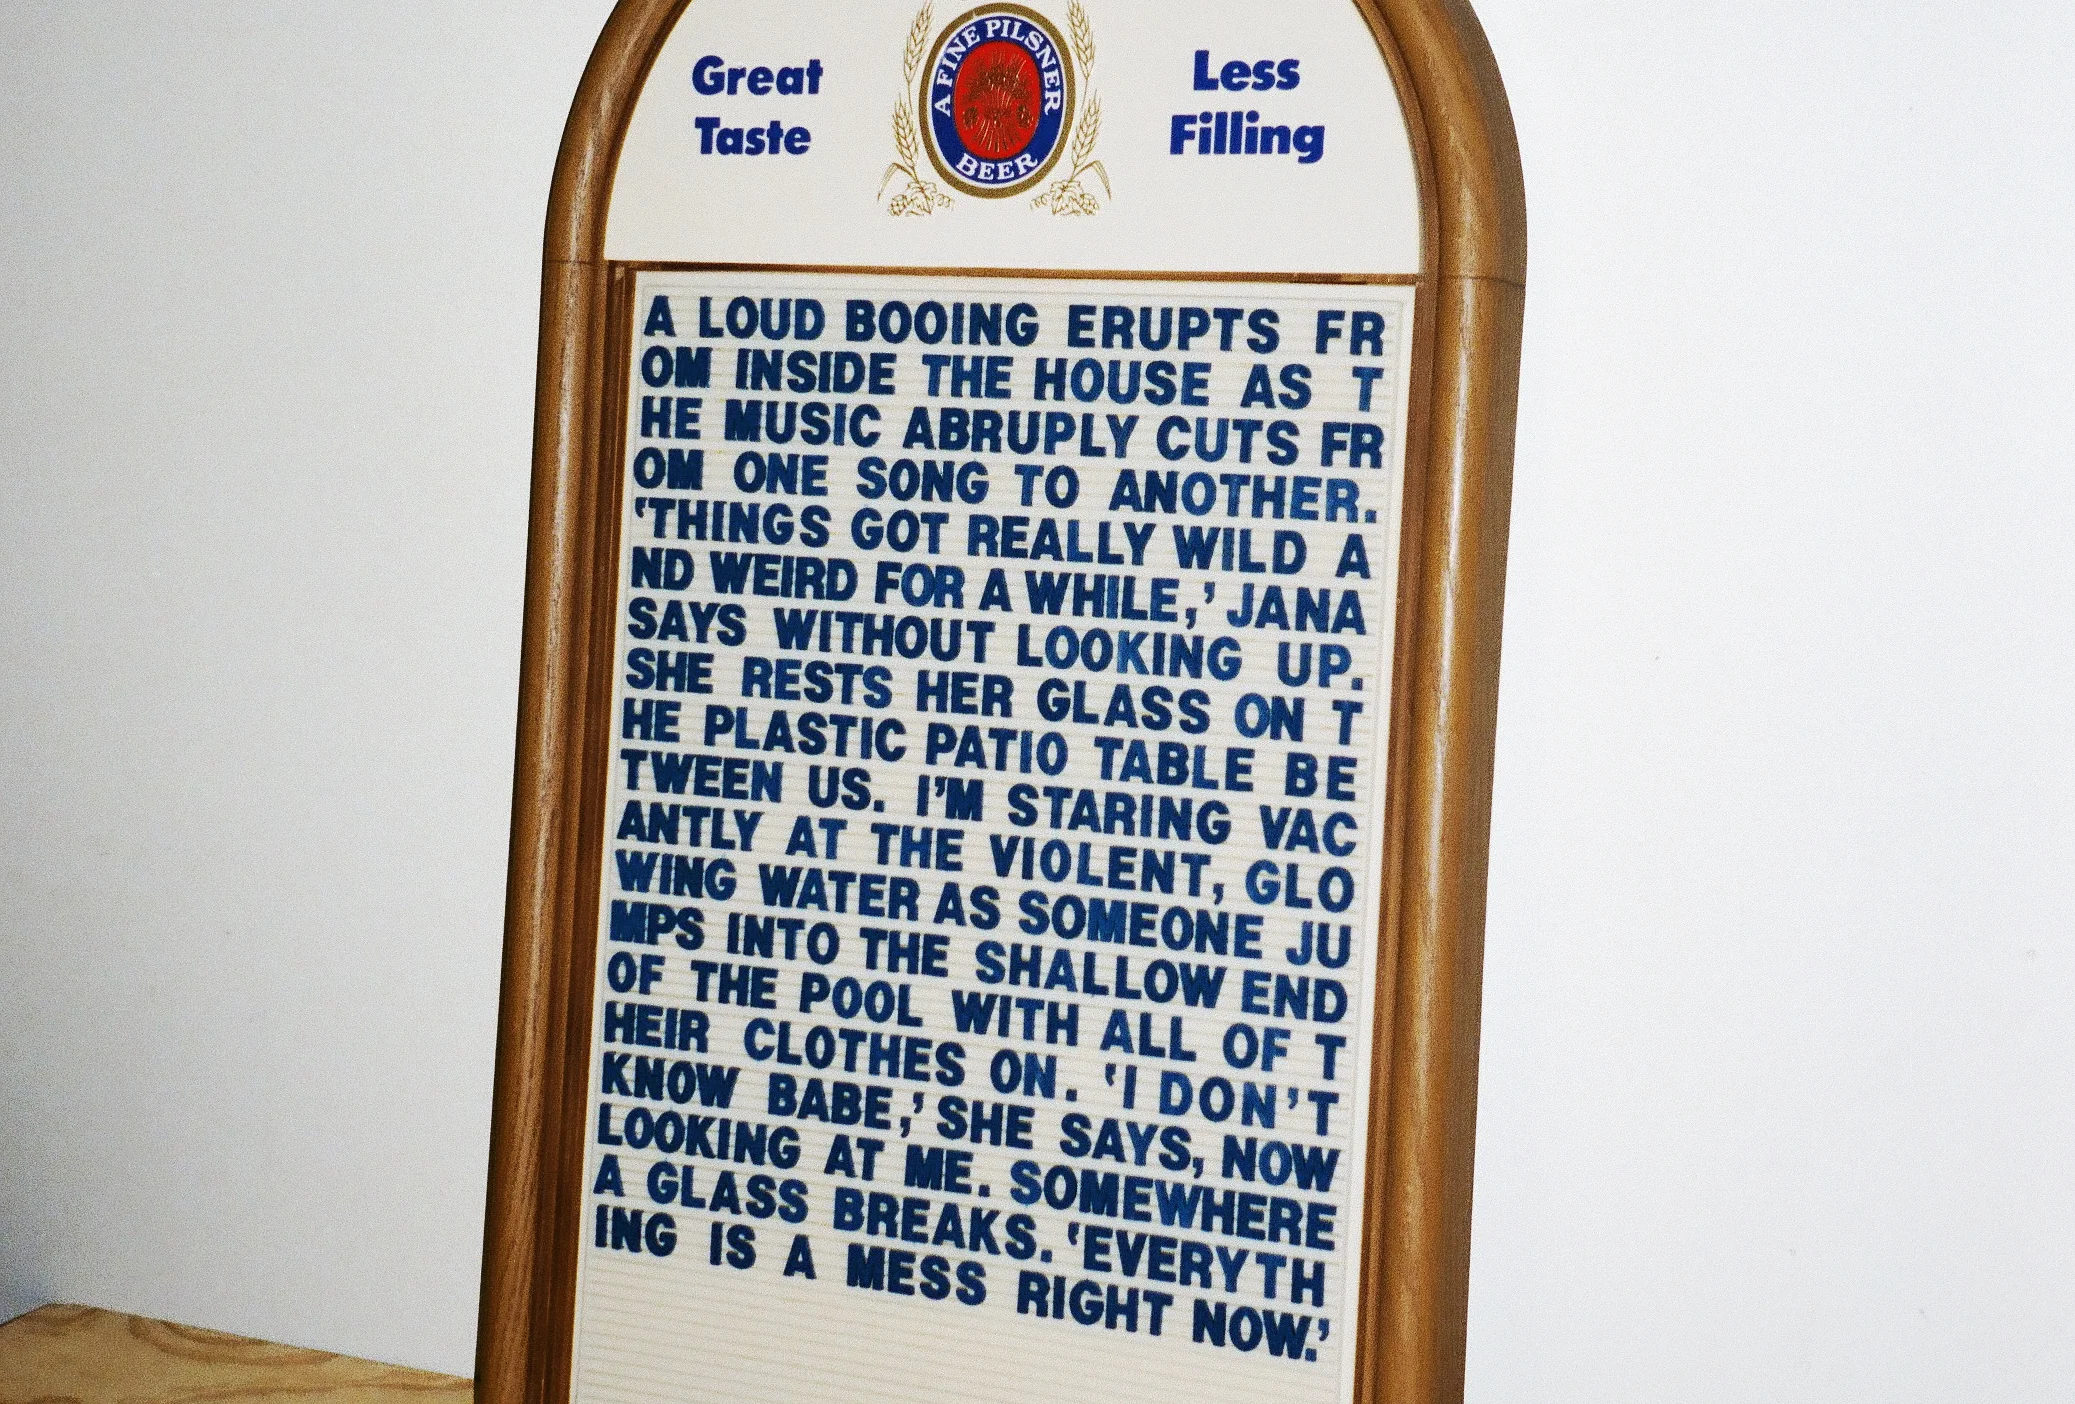 Great Taste
A FINE PILSNER BEER
Less Filling
A LOUD BOOING ERUPTS FR
OM INSIDE THE HOUSE AS T
HE MUSIC ABRUPLY CUTS FR
OM ONE SONG TO ANOTHER.
'THINGS GOT REALLY WILD A
ND WEIRD FOR A WHILE,' JANA
SAYS WITHOUT LOOKING UP.
SHE RESTS HER GLASS ON T
HE PLASTIC PATIO TABLE BE
TWEEN US. I'M STARING VAC
ANTLY AT THE VIOLENT, GLO
WING WATER AS SOMEONE JU
MPS INTO THE SHALLOW END
OF THE POOL WITH ALL OF T
HEIR CLOTHES ON. 'I DON'T
KNOW BABE,' SHE SAYS, NOW
LOOKING AT ME. SOMEWHERE
A GLASS BREAKS. 'EVERYTH
ING IS A MESS RIGHT NOW.'